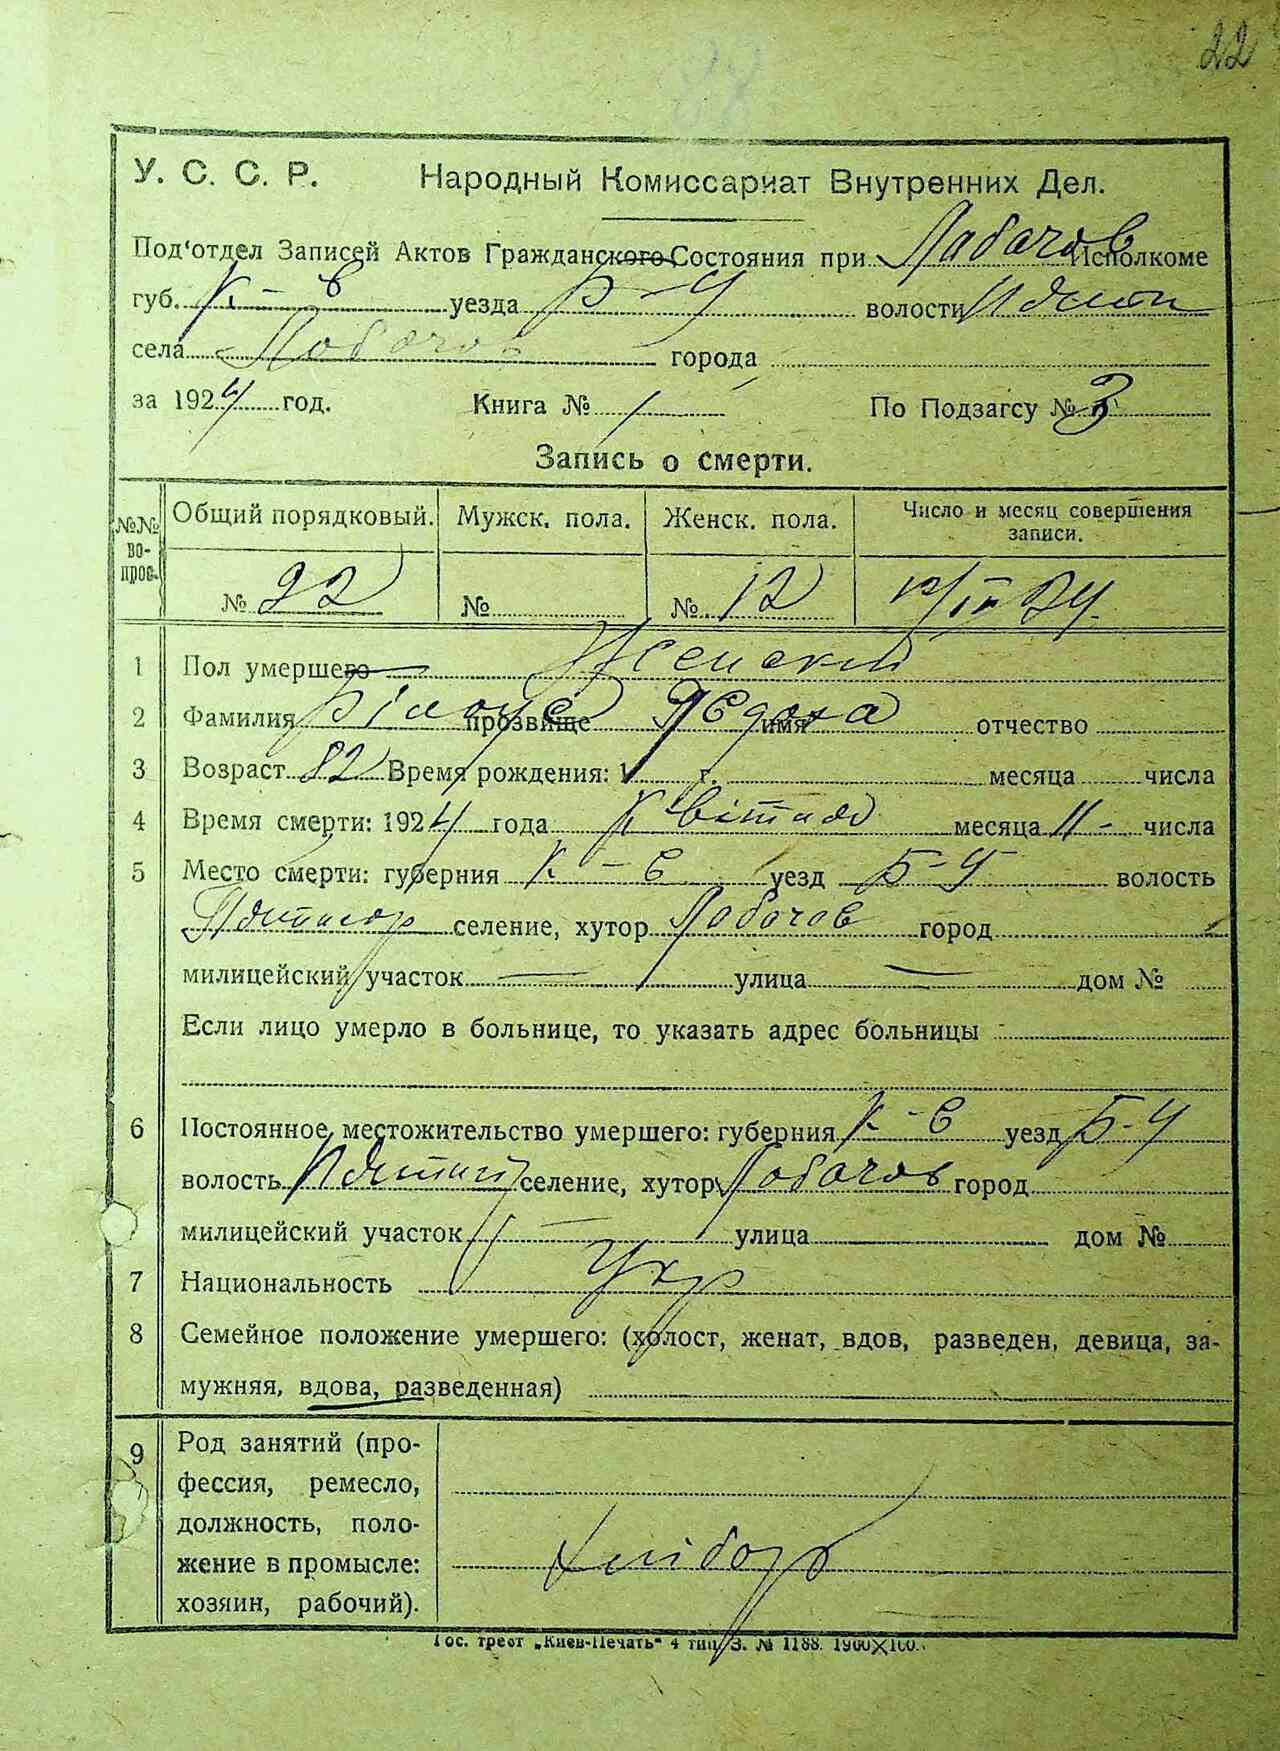 22
У. С. С. Р. Народный Комиссариат Внутренних Дел.
Под'отдел Записей Актов Гражданского Состояния при Лобачов Исполкоме
губ. К-в уезда Б-Ц волости
села Лобачов города
за 1924 год. Книга № 1 По Подзагсу № 3
Запись о смерти.
№№ вопрос. Общий порядковый. Мужск. пола. Женск. пола. Число и месяц совершения записи.
№ 22 № № 12 12/IV 24
1 Пол умершего Женский
2 Фамилия Білоус прозвище Явдоха имя отчество
3 Возраст 82 Время рождения: 1 г. месяца числа
4 Время смерти: 1924 года Квітня месяца 11 - числа
5 Место смерти: губерния К-в уезд Б-Ц волость
селение, хутор Лобачов город
милицейский участок — улица — дом №
Если лицо умерло в больнице, то указать адрес больницы
6 Постоянное местожительство умершего: губерния К-в уезд Б-Ц
волость селение, хутор Лобачов город
милицейский участок — улица дом №
7 Национальность Укр
8 Семейное положение умершего: (холост, женат, вдов, разведен, девица, за-
мужняя, вдова, разведенная)
9 Род занятий (про-
фессия, ремесло,
должность, поло-
жение в промысле: хлібороб
хозяин, рабочий).
Гос. трест „Киев-Печать“ 4 тип. З. № 1188. 1900✕100.